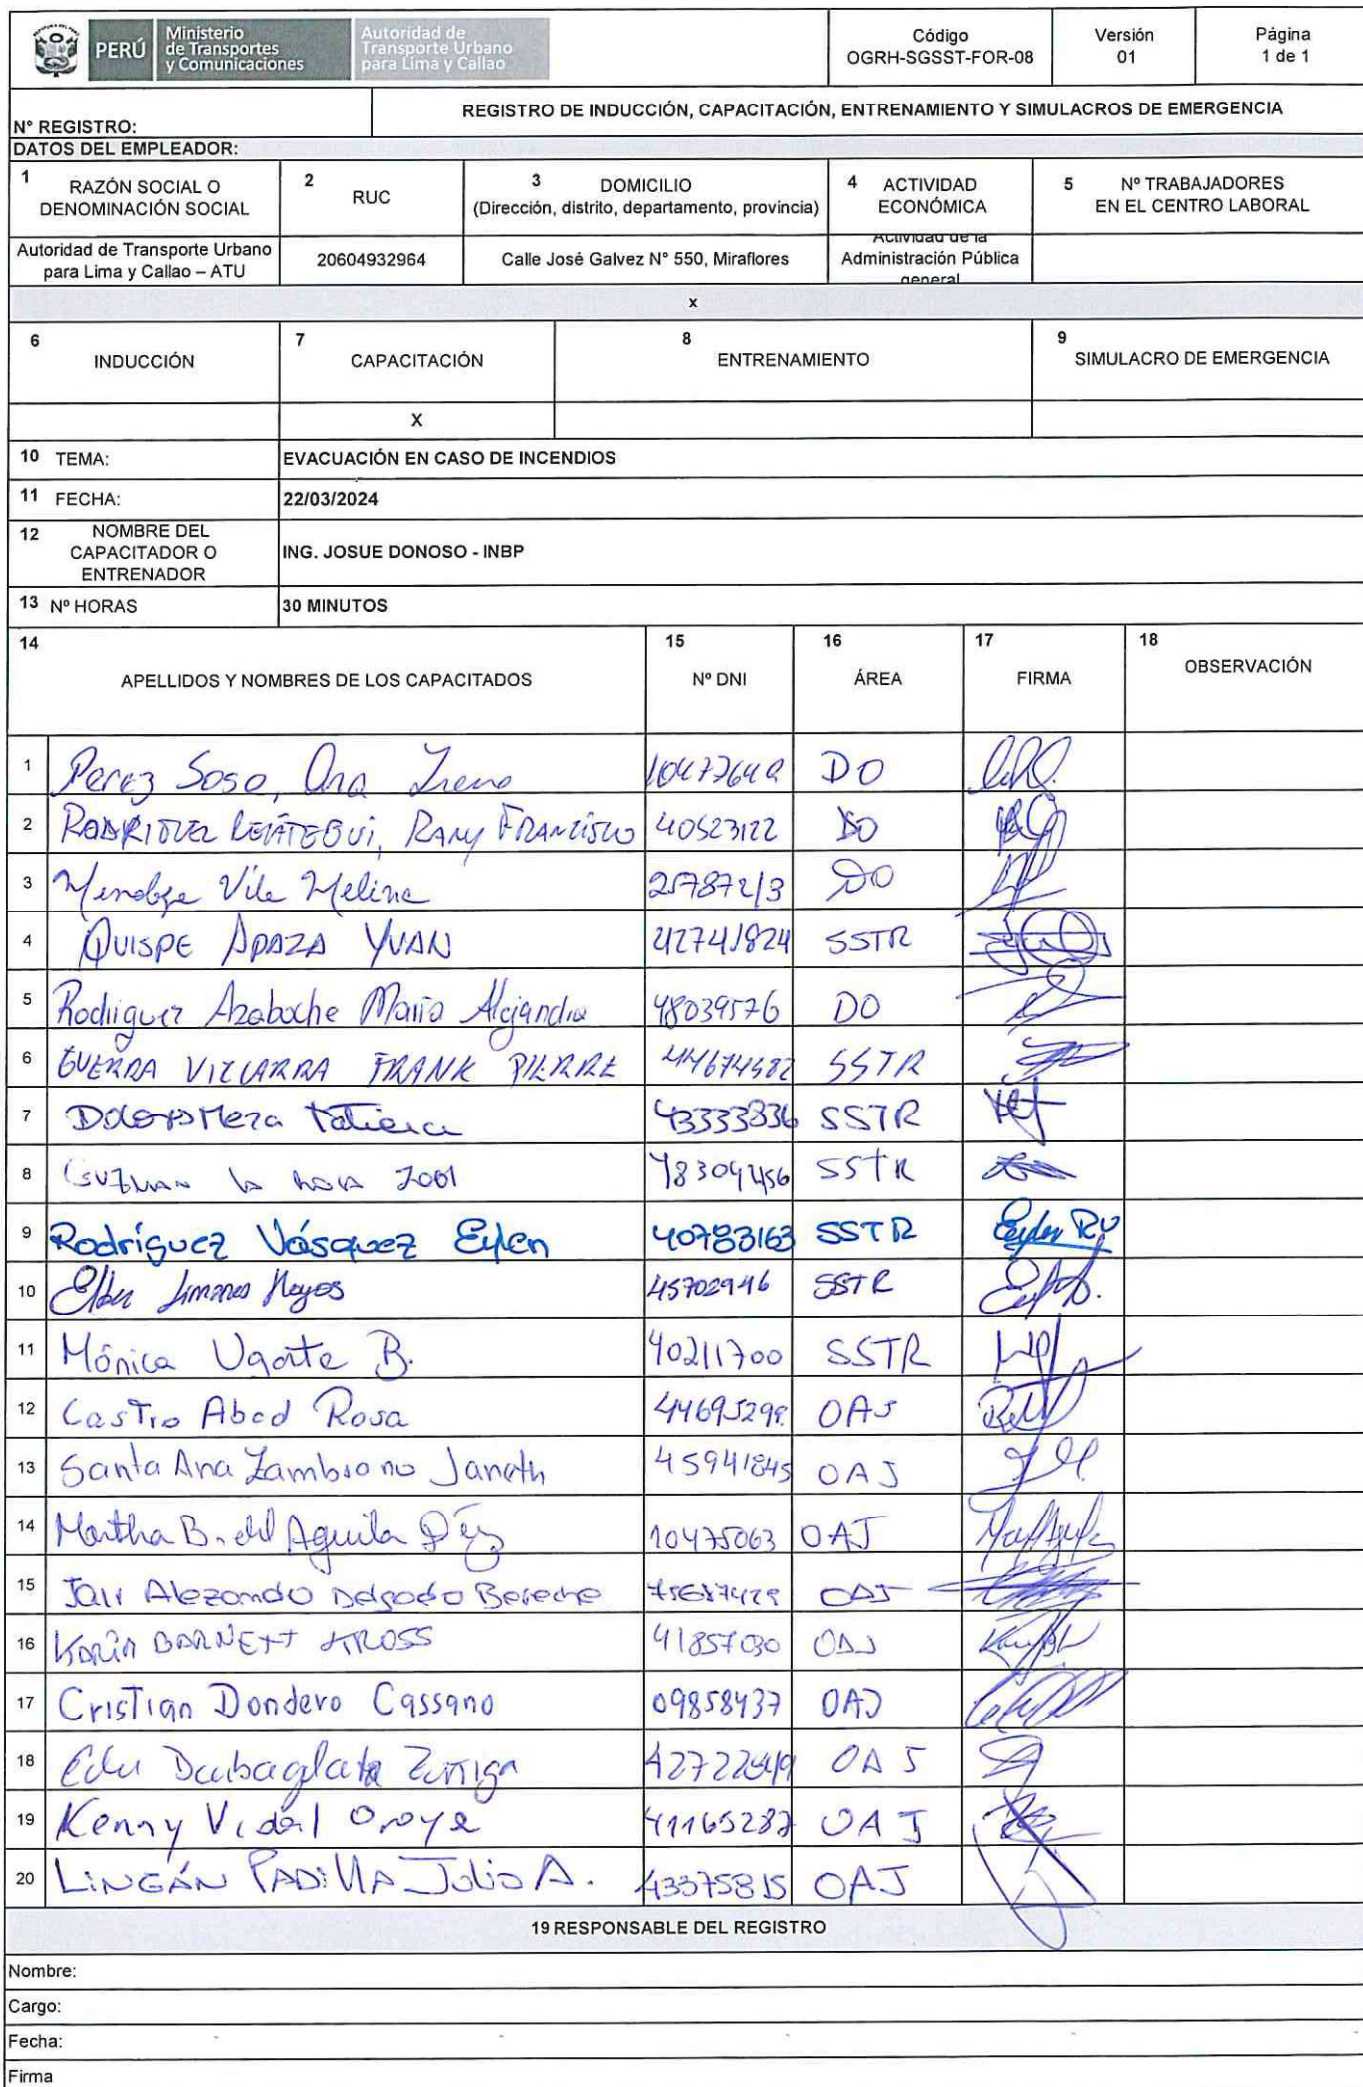 PERÚ
Ministerio
de Transportes
y Comunicaciones
Autoridad de
Transporte Urbano
para Lima y Callao
Código
OGRH-SGSST-FOR-08
Versión
01
Página
1 de 1
N° REGISTRO:
REGISTRO DE INDUCCIÓN, CAPACITACIÓN, ENTRENAMIENTO Y SIMULACROS DE EMERGENCIA
DATOS DEL EMPLEADOR:
1 RAZÓN SOCIAL O
DENOMINACIÓN SOCIAL
2 RUC
3 DOMICILIO
(Dirección, distrito, departamento, provincia)
4 ACTIVIDAD
ECONÓMICA
5 Nº TRABAJADORES
EN EL CENTRO LABORAL
Autoridad de Transporte Urbano
para Lima y Callao – ATU
20604932964
Calle José Galvez N° 550, Miraflores
Actividad de la
Administración Pública
general
x
6 INDUCCIÓN
7 CAPACITACIÓN
8 ENTRENAMIENTO
9 SIMULACRO DE EMERGENCIA
X
10 TEMA: EVACUACIÓN EN CASO DE INCENDIOS
11 FECHA: 22/03/2024
12 NOMBRE DEL
CAPACITADOR O
ENTRENADOR
ING. JOSUE DONOSO - INBP
13 Nº HORAS 30 MINUTOS
14 APELLIDOS Y NOMBRES DE LOS CAPACITADOS
15 Nº DNI
16 ÁREA
17 FIRMA
18 OBSERVACIÓN
1 Perez Soso, Ana Irene DO
2 RODRIGUEZ REÁTEGUI, RANY FRANCISCO 40523122 DO
3 Vila Melina DO
4 QUISPE APAZA YVAN 42741824 SSTR
5 Rodriguez Azabache Maria Alejandra 48039576 DO
6 GUERRA VIZCARRA FRANK PIERRE SSTR
7 Meza Tatiana 43333336 SSTR
8 GUZMAN SSTR
9 Rodríguez Vásquez Eylen 40783163 SSTR
10 Elber Limones 45702946 SSTR
11 Mónica Ugarte B. 40211700 SSTR
12 Castro Abad Rosa OAJ
13 Santa Ana Zambrano Janeth 45941845 OAJ
14 Martha B. del Aguila 10475063 OAJ
15 Delgado OAJ
16 Karin BARNETT 41857030 OAJ
17 Cristian Dondero Cassano 09858437 OAJ
18 Edu Zuñiga OAJ
19 Kenny Vidal Oroya OAJ
20 LINGÁN PADILLA Julio A. 43375815 OAJ
19 RESPONSABLE DEL REGISTRO
Nombre:
Cargo:
Fecha:
Firma